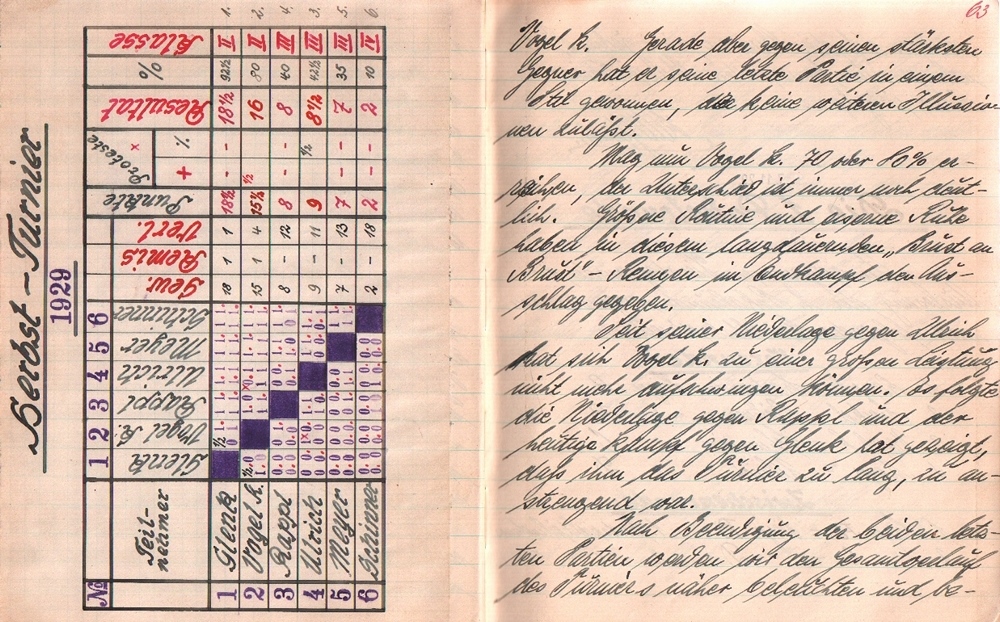 Herbst-Turnier
1929
No Teil-nehmer 1 2 3 4 5 6 Gew. Remis Verl. Punkte Proteste + % Resultat % Klasse
Glenk Vogel K. Rappl Ulrich Meyer Schriener
1 Glenk 18 1 1 18½ - - 18½ 92½ I 1.
2 Vogel K. 15 1 4 15½ ½ - 16 80 I 2.
3 Rappl 8 - 12 8 - - 8 40 III 4.
4 Ulrich 9 - 11 9 - ½ 8½ 42½ III 3.
5 Meyer 7 - 13 7 - - 7 35 III 5.
6 Schriener 2 - 18 2 - - 2 10 IV 6.
63
Vogel K. Gerade aber gegen seinen stärksten
Gegner hat er seine letzte Partie in einem
Stil gewonnen, die keine weiteren Illusio-
nen zulässt.
Mag nun Vogel K. 70 oder 80% er-
reichen, der Unterschied ist immer noch deut-
lich. Grössere Routine und eiserne Ruhe
haben in diesem langdauernden „Brust an
Brust"-Rennen im Endkampf den Aus-
schlag gegeben.
Seit seiner Niederlage gegen Ulrich
hat sich Vogel K. zu einer grossen Leistung
nicht mehr aufschwingen können. Es folgte
die Niederlage gegen Rappl und der
heutige Kampf gegen Glenk hat gezeigt,
dass ihm das Turnier zu lang, zu an-
strengend war.
Nach Beendigung der beiden letz-
ten Partien werden wir den Gesamtverlauf
des Turniers näher beleuchten und be-